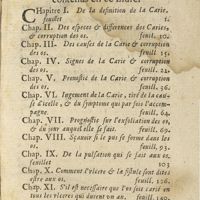 contenus en ce liure.
Chapitre I. De la definition de la Carie,
feuillet 1.
Chap. II. Des especes & differences des Caries,
& corruption des os. feuill.
Chap. III. Des causes de la Carie & corruption
des os. feuill. 25.
Chap. IV. Signes de la Carie & corruption
des os. feuill.
Chap. V. Pronostic de la Carie & corruption
des os. feuill. 22.
Chap. VI. Iugement de la Carie, tiré de la cau-
se d'icelle, & du symptome qui par fois l'accom-
pagne. feuill. 64.
Chap. VII. Prognostic sur l'exfoliation des os,
& du iour auquel elle se fait. feuill. 69.
Chap. VIII. Sçauoir si le pus se forme dans les
os. feuill. 93.
Chap. IX. De la pulsation qui se fait aux os,
feuillet 103
Chap. X. Comment l'vlcere & la fistule sont dites
estre aux os. feuill. 126.
Chap. XI. S'il est necessaire que l'os soit carié en
tous les vlceres qui durent vn an. feuill. 140.